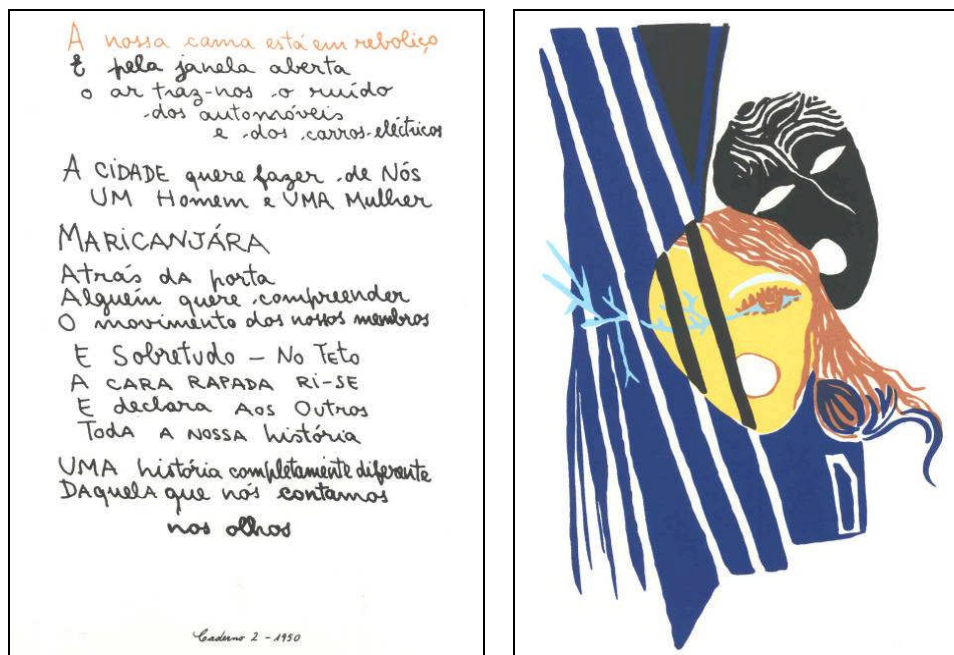 A nossa cama está em reboliço
E pela janela aberta
o ar traz-nos o ruído
dos automóveis
e dos carros-eléctricos
A CIDADE quere fazer de NÓS
UM Homem e UMA Mulher
MARICANJÁRA
Atrás DA porta
Alguém quere compreender
O movimento dos nossos membros
E Sobretudo – No Teto
A CARA RAPADA RI-SE
E declara AOS OUTROS
TODA A NOSSA história
UMA história completamente diferente
DAquela que nós contamos
nos olhos
Caderno 2 - 1950